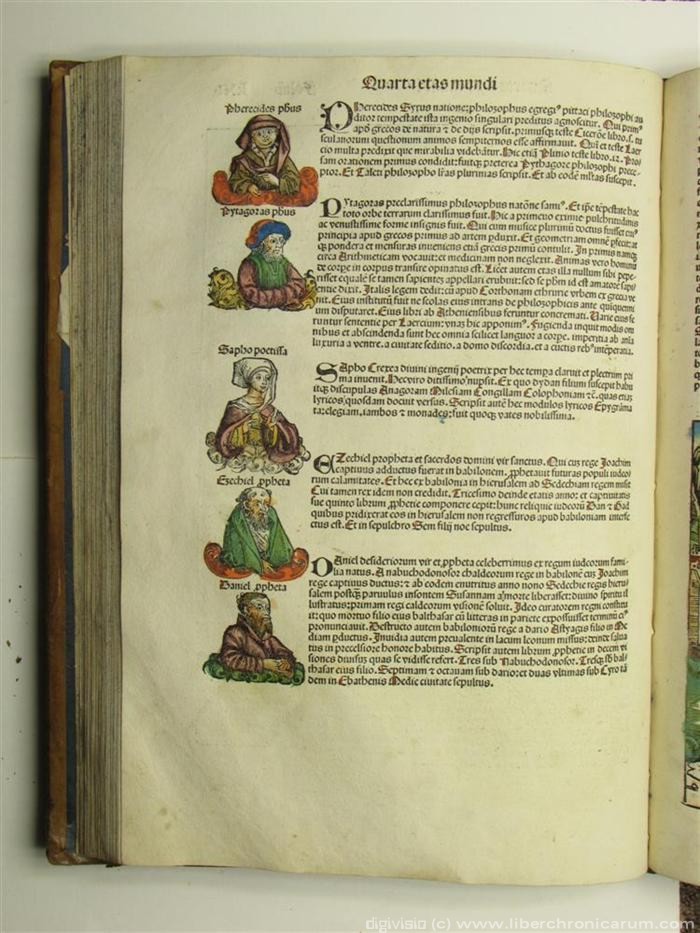 Quarta etas mundi
Pherecides phus
Pherecides Syrus natione: philosophus egregi⁹ pittaci philosophi au
ditor tempestate ista ingenio singulari preditus agnoscitur. Qui prim⁹
apd grecos de natura ⁊ de dijs scripsit. primusq; teste Cicerōe libro .5. tu
sculanorum questionum animos sempiternos esse affirmauit.
cio multa predixit que mirabilia videbātur. Hic etiā Plinio teste libro
sam orationem primus condidit: fuitq; preterea Pythagore philosophi prece-
ptor. Et Taleti philosopho
Pytagoras phus
Pytagoras preclarissimus philosophus natōne sami⁹. Et ipe tēpestate hac
toto orbe terrarum clarissimus fuit. Hic a primeuo eximie pulchritudinis
ac venustissime forme insignis fuit. Qui cum musice plurimū doctus fuisset
principia apud grecos primus ad artem pduxit. Et geometriam omnē pfecit: at
q; pondera et mensuras inueniens etiā grecis primū contulit. In primis namq;
circa Arithmeticam vocauit: et medicinam non neglexit. Animas vero hominū
de corpe in corpus transire opinatus est. Licet autem etas illa nullum sibi
risset equalē se tamen sapientez appellari erubuit: sed se phm id est amatorē sapi
entie dixit. Italis legem dedit: cū apud
nit. Eius institutū fuit ne scolas eius intrans de philosophicis ante quiquenni
um disputaret. Eius libri ab Atheniensibus feruntur concremati. Uarie eius fe
runtur sententie per Laercium: vnaz hic apponim⁹. Fugienda inquit modis om
nibus et abscindenda sunt hec omnia scilicet languor a corpe. imperitia ab aīa
luxuria a ventre. a ciuitate seditio. a domo discordia. et a cūctis reb⁹
Sapho poetissa
SApho Crexea diuini ingenij poetrix per hec tempa claruit et plectrum pri
ma inuenit. Hec viro ditissimo nupsit. Ex quo dydan filium suscepit habu
itq; discipulas Anagoram Milesiam Congillam Colophoniam ⁊c. quas etiaz
lyricos quosdam docuit versus. Scripsit autē hec modulos lyricos Epygrāma
ta: elegiam. iambos ⁊ monades: fuit quoq; vates nobilissima.
Ezechiel ppheta
EZechiel propheta et sacerdos domini vir sanctus. Qui cuz rege Joachim
captiuus adductus fuerat in babilonem. pphetauit futuras populi iudeo
rum calamitates. Et hec ex babilonia in hierusalem ad Sedechiam regem misit
Cui tamen rex idem non credidit. Tricesimo deinde etatis anno: et captiuitatis
sue quinto librum pphetie componere cepit: hunc relique iudeorū Dan ⁊ Gad
quibus pridixerat eos in hierusalem non regressuros apud babiloniam interfe
ctus est. Et in sepulchro Sem filij noe sepultus.
Daniel ppheta
DAniel desideriorum vir et ppheta celeberrimus ex regum iudeorum fami-
lia natus. A nabuchodonosor chaldeorum rege in babilonē cuz Joachim
rege captiuus ductus: ⁊ ab codem enutritus anno nono Sedechie regis hieru
salem postq̄ paruulus insontem Susannam a morte liberasset: diuino spiritu il
lustratus: primam regi caldeorum visionē soluit. Ideo curatorem regni constitu
it: quo mortuo filio eius balthasar cū litteras in pariete expossuisset
pronunciauit. Destructo autem babilonioꝝ rege a dario Astyagis filio in Me
diam pductus. Inuidia autem preualente in lacum leonum missus: deinde salua
tus in precelsiore honore habitus. Scripsit autem librum pphetie in decem vi
siones diuisus quas se vidisse refert. Tres sub Nabuchodonosor. Tresq; sb bal-
thasar eius filio. Septimam ⁊ octauam sub dario: et duas vltimas sub Cyro tā
dem in Ebathenis Medie ciuitate sepultus.
digivisio (c) www.liberchronicarum.com